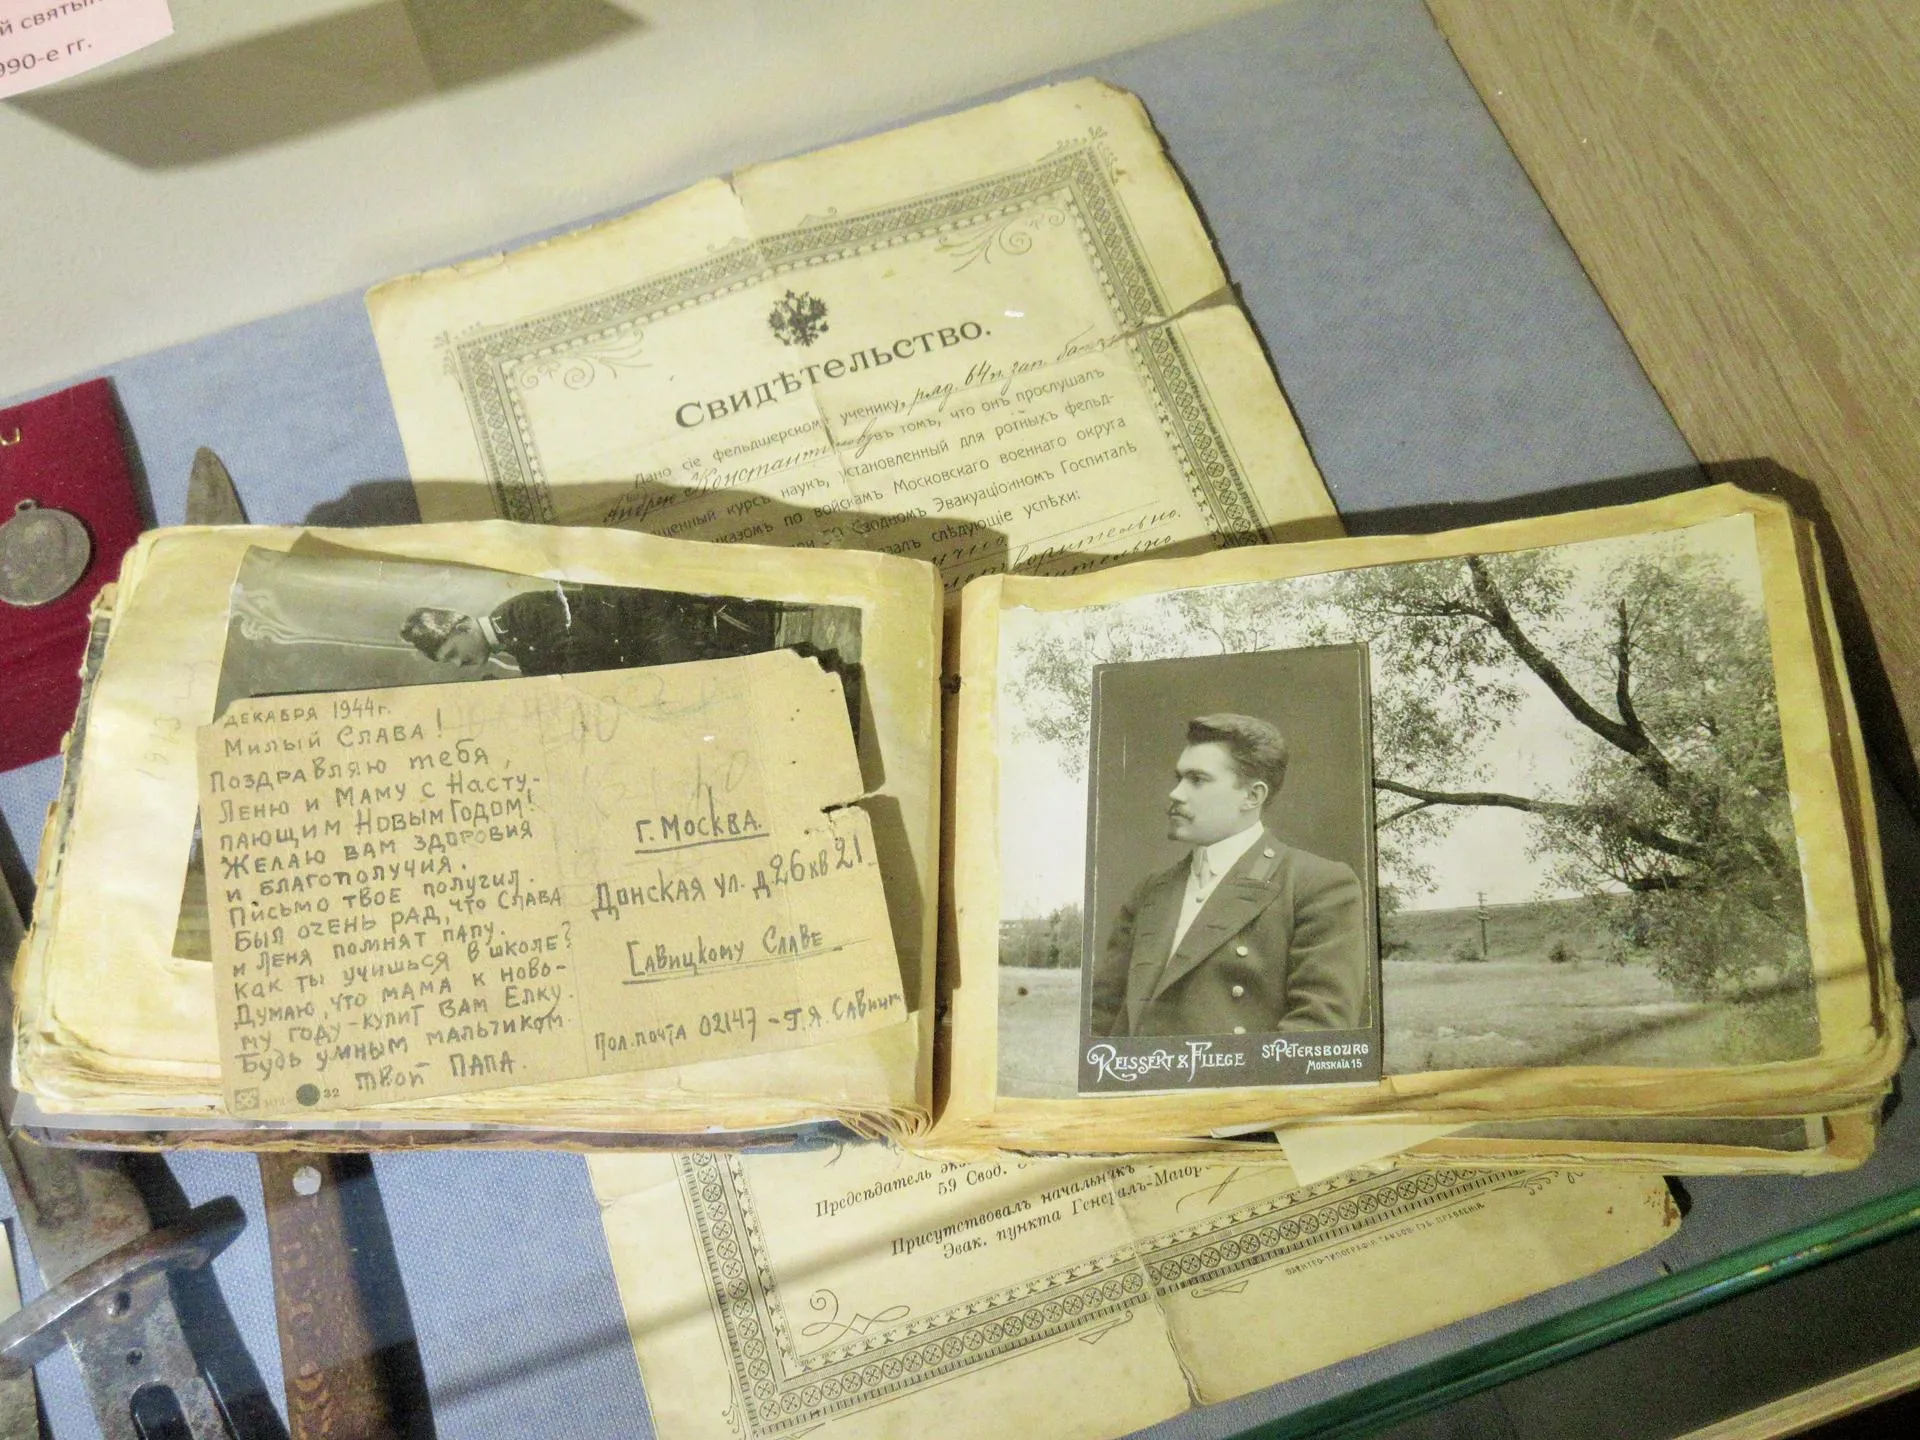 й святын
990-е гг.
Свидѣтельство.
Дано сіе фельдшерском ученику, ряд. 64 п. зап. бат
Андрею Константинову въ томъ, что онъ прослушалъ
щенный курсъ наукъ, установленный для ротныхъ фельд-
иказомъ по войскамъ Московскаго военнаго округа
при 59 Сводномъ Эвакуаціонномъ Госпиталѣ
азалъ слѣдующіе успѣхи:
ворительно.
ительно
1913
ДЕКАБРЯ 1944 г.
Милый Слава!
Поздравляю тебя,
Леню и Маму с Насту-
пающим Новым Годом!
Желаю вам здоровия
и благополучия.
Письмо твое получил.
Был очень рад, что Слава
и Леня помнят папу.
Как ты учишься в школе?
Думаю, что мама к Ново-
му году - купит вам Елку.
Будь умным мальчиком.
Твой ПАПА.
32
г. Москва.
Донская ул. д 26 кв 21
Савицкому Славе
Пол. почта 02147 - Г. Я. Савицк
REISSERT & FLIEGE ST PETERSBOURG
MORSKAÏA 15
Предсѣдатель эк
59 Свод.
Присутствовалъ начальникъ
Эвак. пункта Генералъ-Маіоръ
ЭЛЕКТРО-ТИПОГРАФІЯ ТАМБОВ. ГУБ. ПРАВЛЕНІЯ.